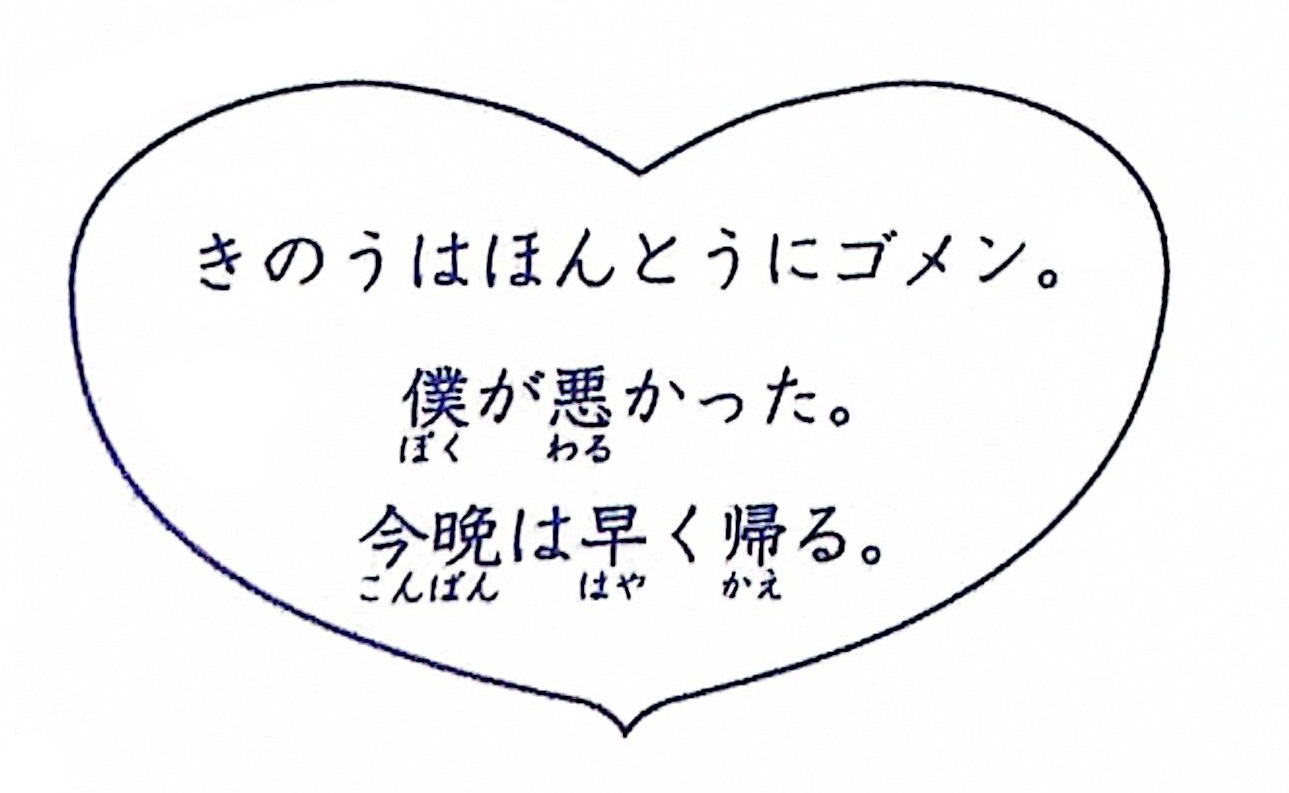 きのうはほんとうにゴメン。
僕が悪かった。
ぼく わる
今晩は早く帰る。
こんばん はや かえ